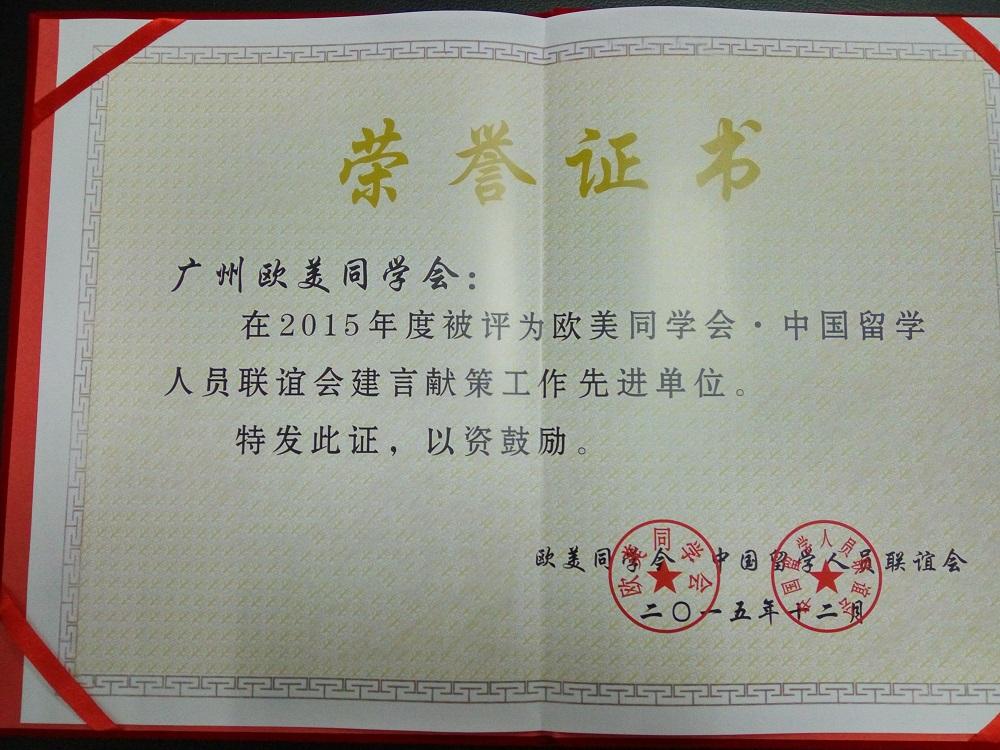 荣誉证书
广州欧美同学会：
在2015年度被评为欧美同学会·中国留学
人员联谊会建言献策工作先进单位。
特发此证，以资鼓励。
欧美同学会 中国留学人员联谊会
二〇一五年十二月
欧美同学会
中国留学人员联谊会